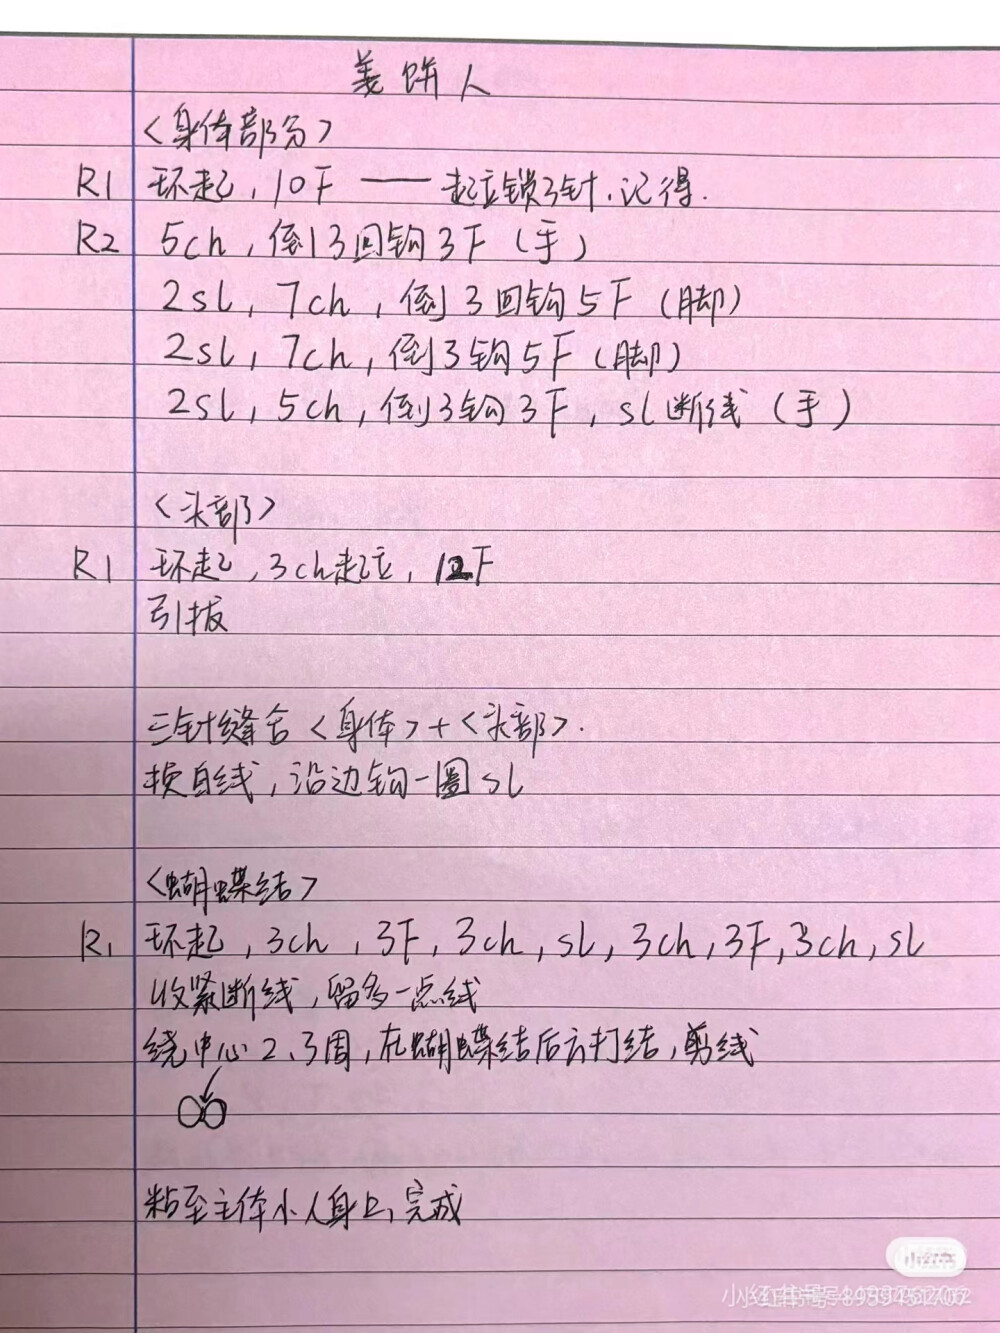 姜饼人
<身体部分>
R1 环起，10F —— 起立锁3针，记得.
R2 5ch，倒3回钩3F（手）
2sl，7ch，倒3回钩5F（脚）
2sl，7ch，倒3钩5F（脚）
2sl，5ch，倒3钩3F，sl断线（手）
<头部>
R1 环起，3ch起立，12F
引拔
三针缝合<身体>+<头部>.
换白线，沿边钩一圈sl
<蝴蝶结>
R1 环起，3ch，3F，3ch，sl，3ch，3F，3ch，sl
收紧断线，留多一点线
绕中心2、3周，在蝴蝶结后方打结，剪线
粘至主体小人身上，完成
小红书
小红书号